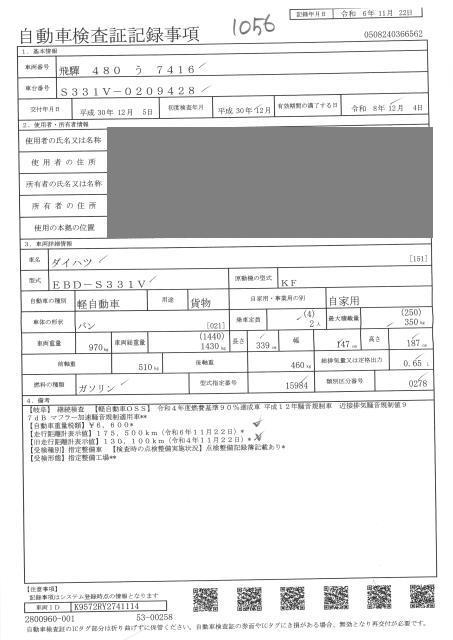 1056
記録年月日 令和 6年11月 22日
自動車検査証記録事項
0508240366562
1. 基本情報
車両番号 飛騨 480 う 7416
車台番号 S331V-0209428
交付年月日 平成 30年12月 5日 初度検査年月 平成 30年12月 有効期間の満了する日 令和 8年12月 4日
2. 使用者・所有者情報
使用者の氏名又は名称
使用者の住所
所有者の氏名又は名称
所有者の住所
使用の本拠の位置
3. 車両詳細情報
車名 ダイハツ [151]
型式 EBD-S331V 原動機の型式 KF
自動車の種別 軽自動車 用途 貨物 自家用・事業用の別 自家用
車体の形状 バン [021] 乗車定員 (4) 2人 最大積載量 (250) 350kg
車両重量 970kg 車両総重量 (1440) 1430kg 長さ 339cm 幅 147cm 高さ 187cm
前軸重 510kg 後軸重 460kg 総排気量又は定格出力 0.65L
燃料の種類 ガソリン 型式指定番号 15984 類別区分番号 0278
4. 備考
【岐阜】 継続検査 【軽自動車OSS】 令和4年度燃費基準90%達成車 平成12年騒音規制車 近接排気騒音規制値9
7dB マフラー加速騒音規制適用車**
【自動車重量税額】¥6,600*
【走行距離計表示値】175,500km（令和6年11月22日）*
【旧走行距離計表示値】130,100km（令和4年11月22日）*
【受検種別】指定整備車 【検査時の点検整備実施状況】点検整備記録簿記載あり*
【受検形態】指定整備工場**
【注意事項】
記録事項はシステム登録時点の情報となります
車両ID K9572RY2741114
2800960-001 53-00258
自動車検査証のICタグ部分は折り曲げずに保管してください。自動車検査証の券面やICタグにき損がある場合、無効となり再交付が必要です。